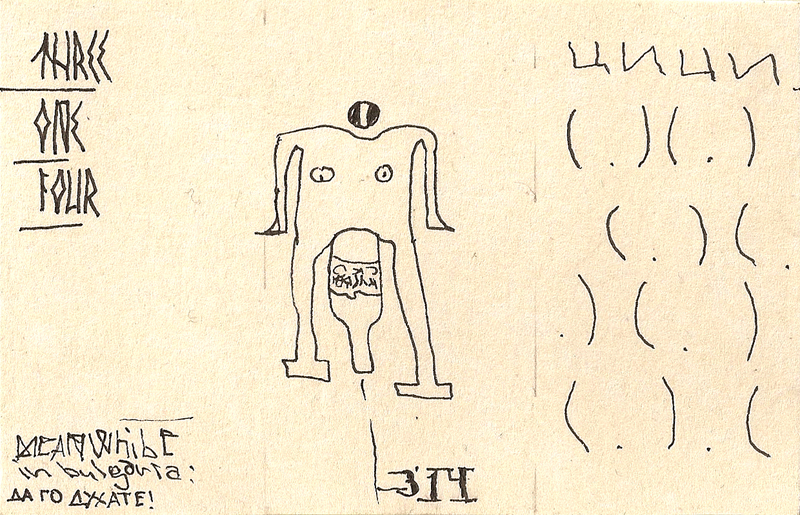 THREE
ONE
FOUR
MEANWhilE
in bulgaria:
ДА ГО ДУХАТЕ!
314
ЦИЦИ